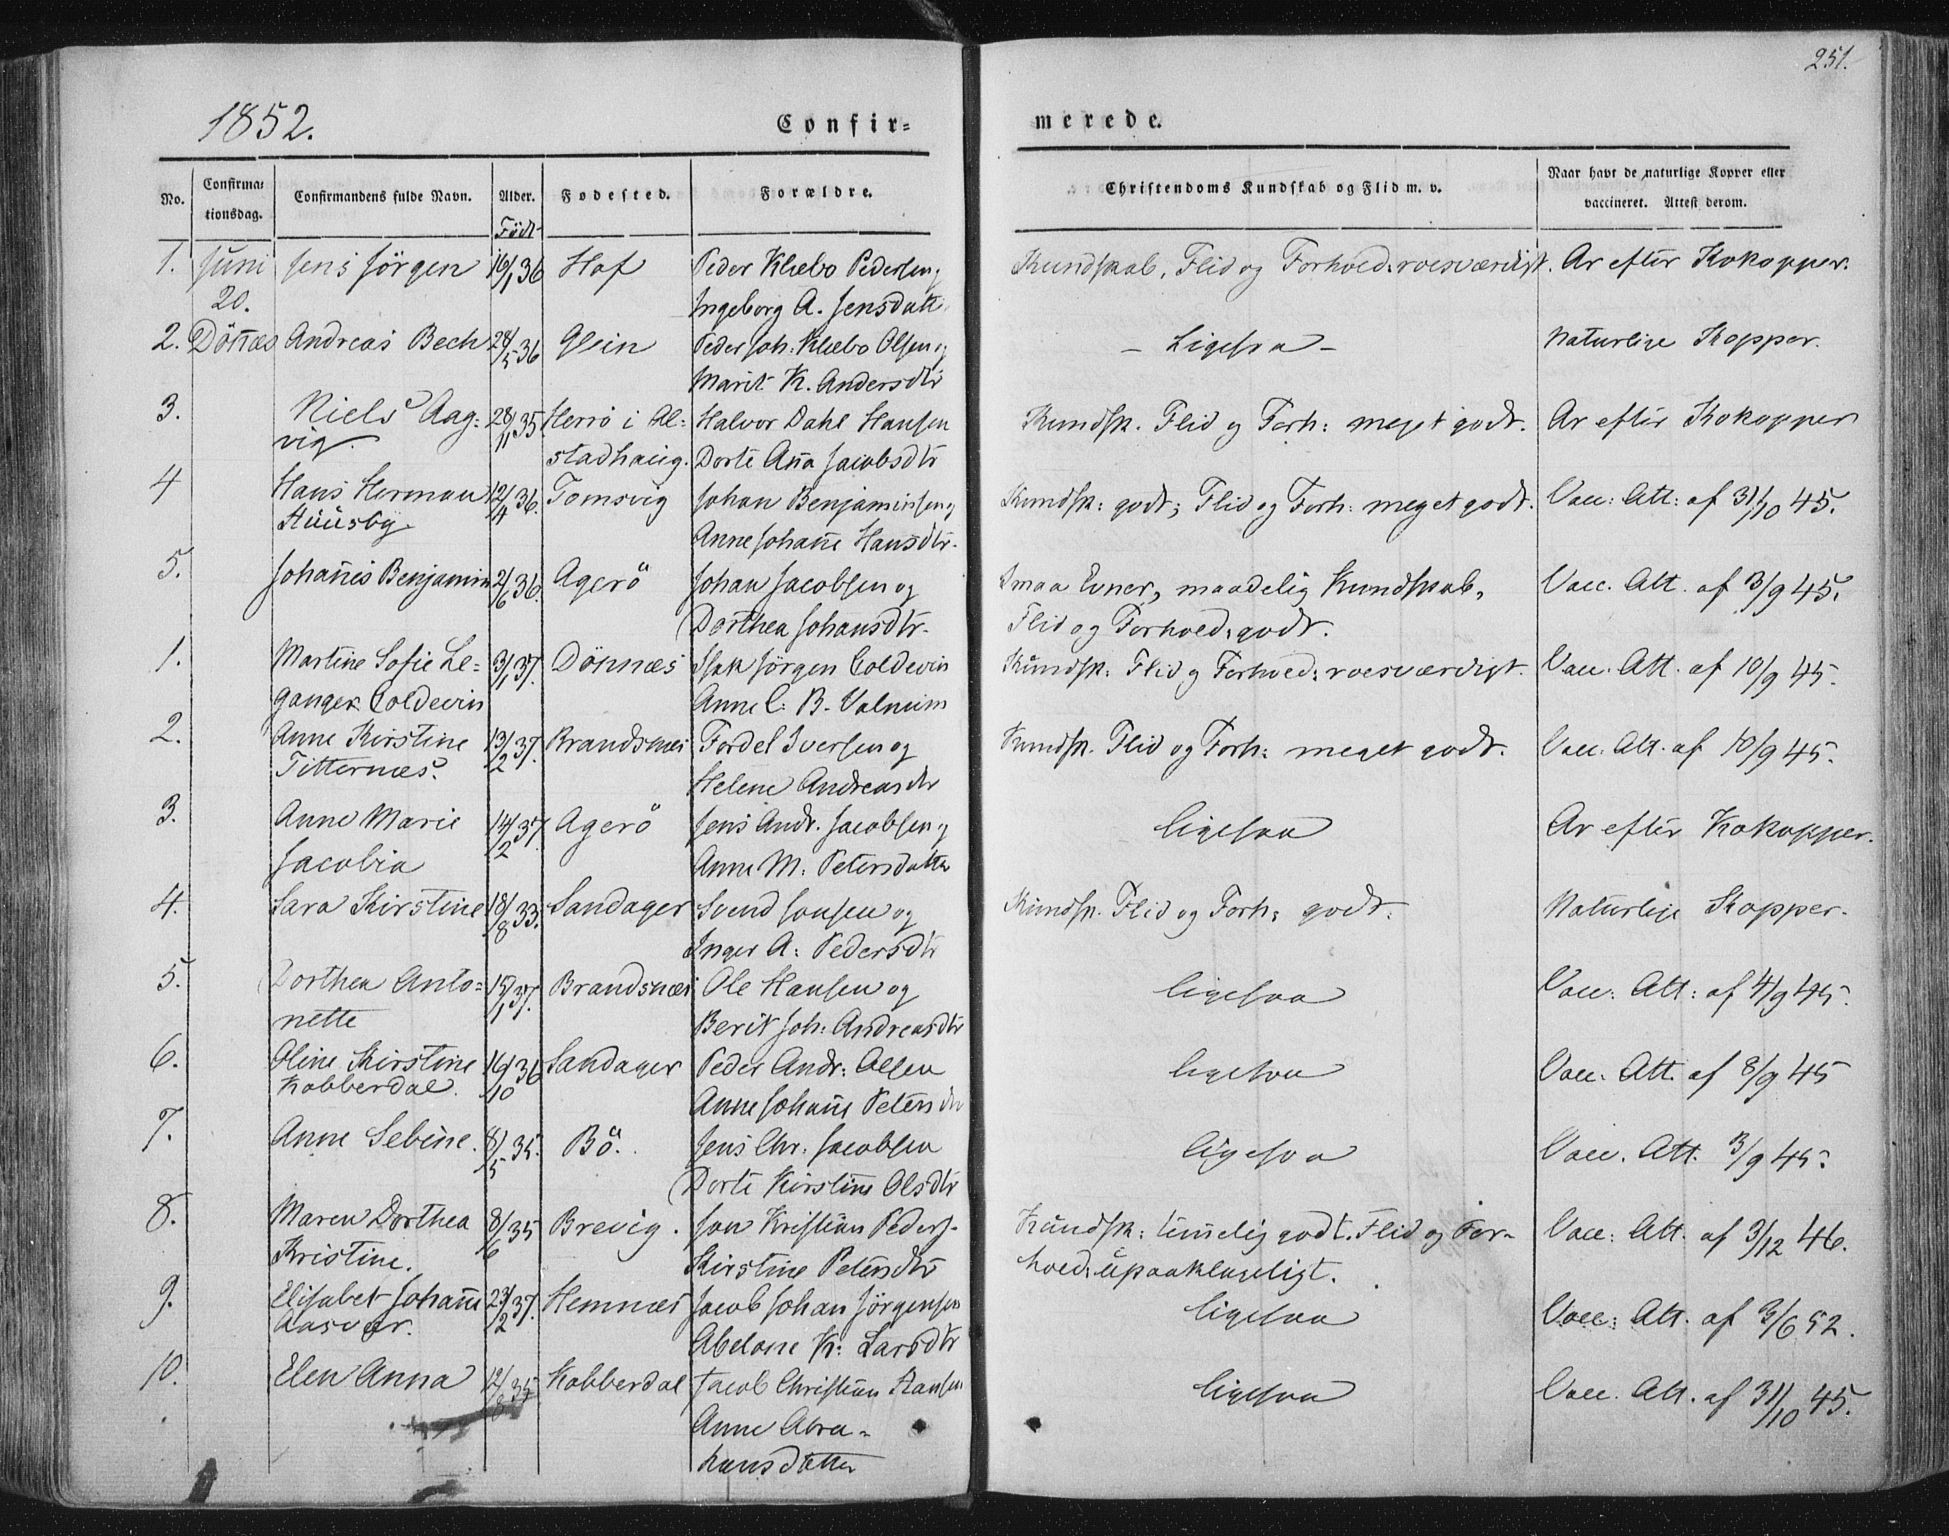 251.
1852.
Confir=
merede.
No.
Confirma=
tionsdag.
Confirmandens fulde Navn.
Alder.
Födt
Fødested.
Forældre.
Christendoms Kundskab og Flid m. v.
Naar havt de naturlige Kopper eller
vaccineret. Attest derom.
1. Juni Jens Jörgen 16/1 36 Hof Peder Klæbo Pedersen og Kundskab, Flid og Forhold: roesværdigt. Ar efter Kokopper.
20. Ingeborg A. Jensdatt.
2. Dönæs Andreas Bech 24/5 36 Glein Peder Joh: Klæbo Olsen og – Ligesaa – Naturlige Kopper.
Marit K. Andersdtr
3. Niels Aag- 28/11 35. Herrö i Al- Halvor Dahl Hansen Kundsk. Flid og Forh: meget godt. Ar efter Kokopper
vig. stadhaug. Dorte Ana Jacobsdtr
4 Hans Herman 12/4 36. Tomsvig Johan Benjaminsen og Kundsk: godt; Flid og Forh: meget godt. Vacc: Att: af 31/10 45.
Huusby. Anne Johane Hansdtr.
5. Johanes Benjamin 2/6 36. Agerö Johan Jacobsen og Smaa Evner, maadelig Kundskab, Vacc. Att. af 3/9 45.
Dorthea Johansdtr. Flid og Forhold: godt.
1. Martine Sofie Le- 3/1 37. Dönnæs Isak Jörgen Coldevin Kundsk: Flid og Forhold: roesværdigt. Vacc. Att. af 10/9 45.
ganger Coldevin Anne C: B. Valnum
2. Anne Kirstine 13/2 37. Brandsnæs Fordel Iversen og Kundsk. Flid og Forh: meget godt. Vacc. Att. af 10/9 45.
Titternæs. Helene Andreasdtr
3. Anne Marie 14/2 37. Agerö Jens Andr. Jacobsen og ligesaa Ar efter Kokopper.
Jacobia Anne M: Petersdatter
4. Sara Kirstine 18/8 33. Sandager Svend Jonsen og Kundsk. Flid og Forh: godt. Naturlige Kopper.
Inger A: Pedersdtr
5. Dorthea Anto= 15/1 37. Brandsnæs Ole Hansen og ligesaa Vacc: Att: af 4/9 45.
nette Berit Joh: Andreasdtr
6. Oline Kirstine 16/10 36 Sandager Peder Andr: Olsen ligesaa Vacc. Att. af 8/9 45
Kobberdal. Anne Johane Petersdtr
7. Anne Sebine. 8/5 35. Bö. Jens Chr. Jacobsen ligesaa Vacc. Att. 3/9 45.
Dorte Kirstine Olsdtr
8. Maren Dorthea 8/6 35 Brevig. Jon Kristian Peders. Kundsk: temelig godt. Flid og For- Vacc: Att. af 3/12 46.
Kristine. Kirstine Petersdtr hold: upaaklageligt.
9. Elisabet Johane 23/2 37. Hemnæs Jacob Johan Jörgensen ligesaa Vacc: Att. af 3/6 52.
Aasvær. Abelone K: Larsdtr
10. Elen Anna 12/8 35 Kobberdal Jacob Christian Hansen ligesaa Vacc. Att. af 31/10 45.
Anne Abra-
hamsdatter